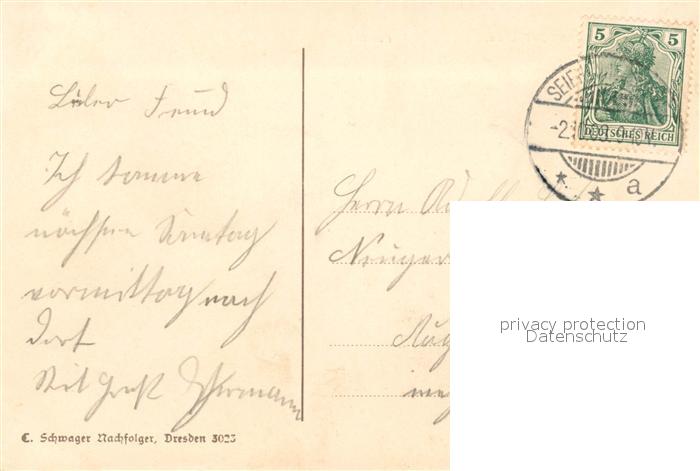 Lieber Freund
Ich komme
nächsten Sonntag
vormittag nach
dort
Mit Gruß Hermann
C. Schwager Nachfolger, Dresden 3023
5 5
DEUTSCHES REICH
SEIF
-2.10.09
* * a
Herrn
Neuger
privacy protection
Datenschutz